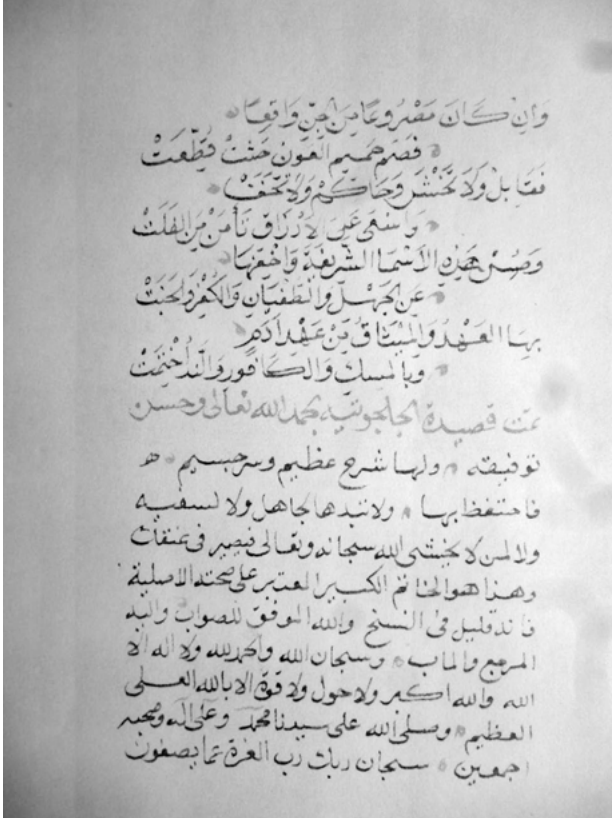 وَإِنْ كَانَ مَصْرُوعًا مِنَ الجِنِّ وَاقِعًا
فَصَمْصَمِ العَوْن حَنَثْ قُطِّعَتْ
فَقَابِلْ وَلَا تَخْشَ وَحَاكِمْ وَلَا تَخَفْ
الأَرْزَاقِ تَأْمَنْ مِنَ الفَلَتْ
وَصُنْ هَذِهِ الأَسْمَا الشَّرِيفَةَ وَاخْفِهَا
عَنِ الجَهْلِ وَالطُّغْيَانِ وَالكُفْرِ وَالخَنَتْ
بِهَا العَهْدُ وَالمِيثَاقُ مِنْ عَهْدِ آدَمٍ
وَبِالمِسْكِ وَالكَافُورِ وَالنَّدِ اخْتُتِمَتْ
تمت قصيدة الجلجوتيه بحمد الله تعالى وحسن
توفيقه ولها شرح عظيم وسر جسيم
فاحتفظ بها ولا تبدها لجاهل ولا لسفيه
ولا لمن لا يخشى الله سبحانه وتعالى فيصير في عنقك
وهذا هو الخاتم الكبير على صحته الاصلية
فانه قليل في النسخ والله الموفق للصواب واليه
المرجع والماب وسبحان الله والحمد لله ولا اله الا
الله والله اكبر ولا حول ولا قوة الا بالله العلى
العظيم وصلى الله على سيدنا محمد وعلى آله وصحبه
اجمعين سبحان ربك رب العزة عما يصفون